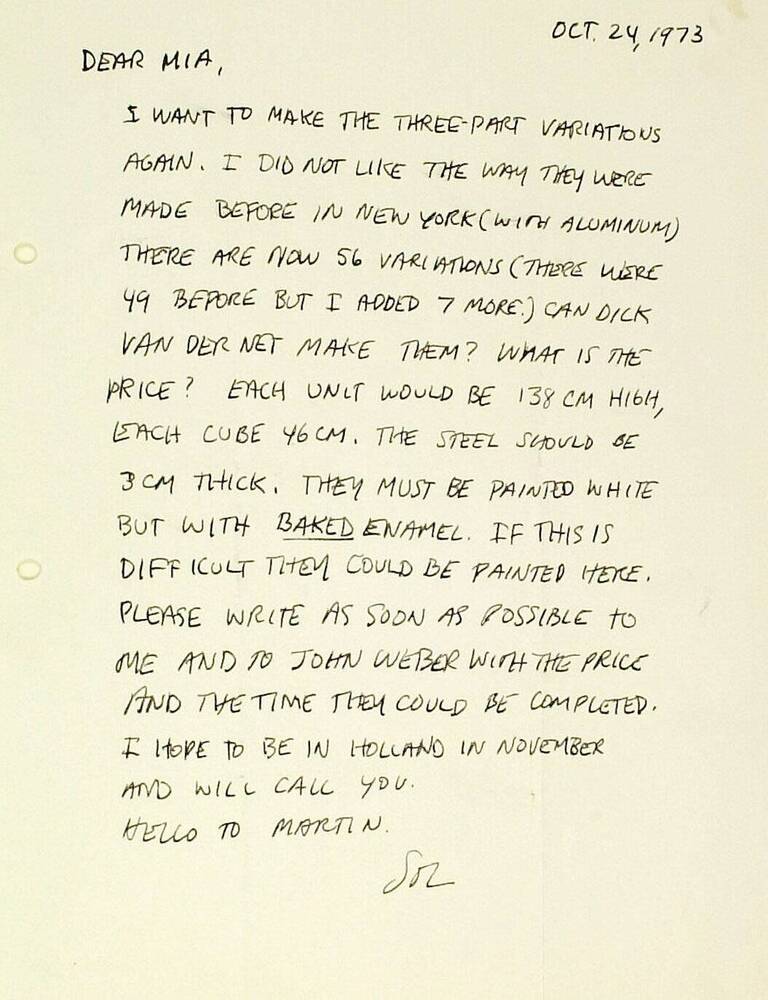 OCT. 24, 1973
DEAR MIA,
I WANT TO MAKE THE THREE-PART VARIATIONS
AGAIN. I DID NOT LIKE THE WAY THEY WERE
MADE BEFORE IN NEW YORK (WITH ALUMINUM)
THERE ARE NOW 56 VARIATIONS (THERE WERE
49 BEFORE BUT I ADDED 7 MORE.) CAN DICK
VAN DER NET MAKE THEM? WHAT IS THE
PRICE? EACH UNIT WOULD BE 138 CM HIGH,
EACH CUBE 46 CM. THE STEEL SHOULD BE
3 CM THICK. THEY MUST BE PAINTED WHITE
BUT WITH BAKED ENAMEL. IF THIS IS
DIFFICULT THEY COULD BE PAINTED HERE.
PLEASE WRITE AS SOON AS POSSIBLE TO
ME AND TO JOHN WEBER WITH THE PRICE
AND THE TIME THEY COULD BE COMPLETED.
I HOPE TO BE IN HOLLAND IN NOVEMBER
AND WILL CALL YOU.
HELLO TO MARTIN.
SOL